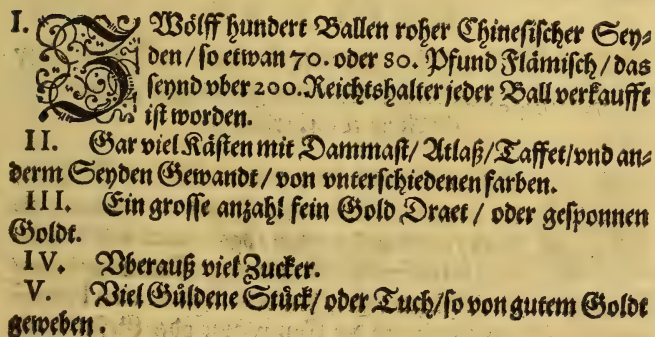 I. ZWölff hundert Ballen roher Chinesischer Sey-
den / so etwan 70. oder 80. Pfund Flämisch / das
seynd vber 200. Reichtshalter jeder Ball verkaufft
ist worden.
II. Gar viel Kästen mit Dammast / Atlaß / Taffet / vnd an-
derm Seyden Gewandt / von vnterschiedenen farben.
III. Ein grosse anzahl fein Gold Draet / oder gesponnen
Goldt.
IV. Vberauß viel Zucker.
V. Viel Güldene Stück / oder Tuch / so von gutem Goldt
geweben.